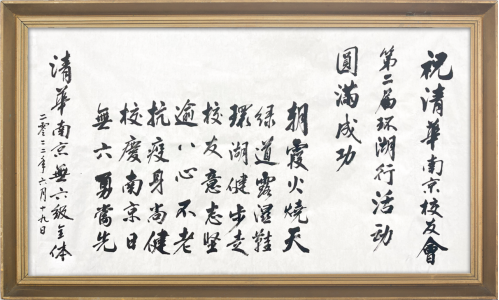 祝清華南京校友會
第二届环湖行活动
圓满成功
朝霞火燒天
绿道露濕鞋
環湖健步走
校友意志堅
逾八心不老
抗疫身尚健
校慶南京日
無六勇當先
清華南京無六級全体
二零二二年六月十九日